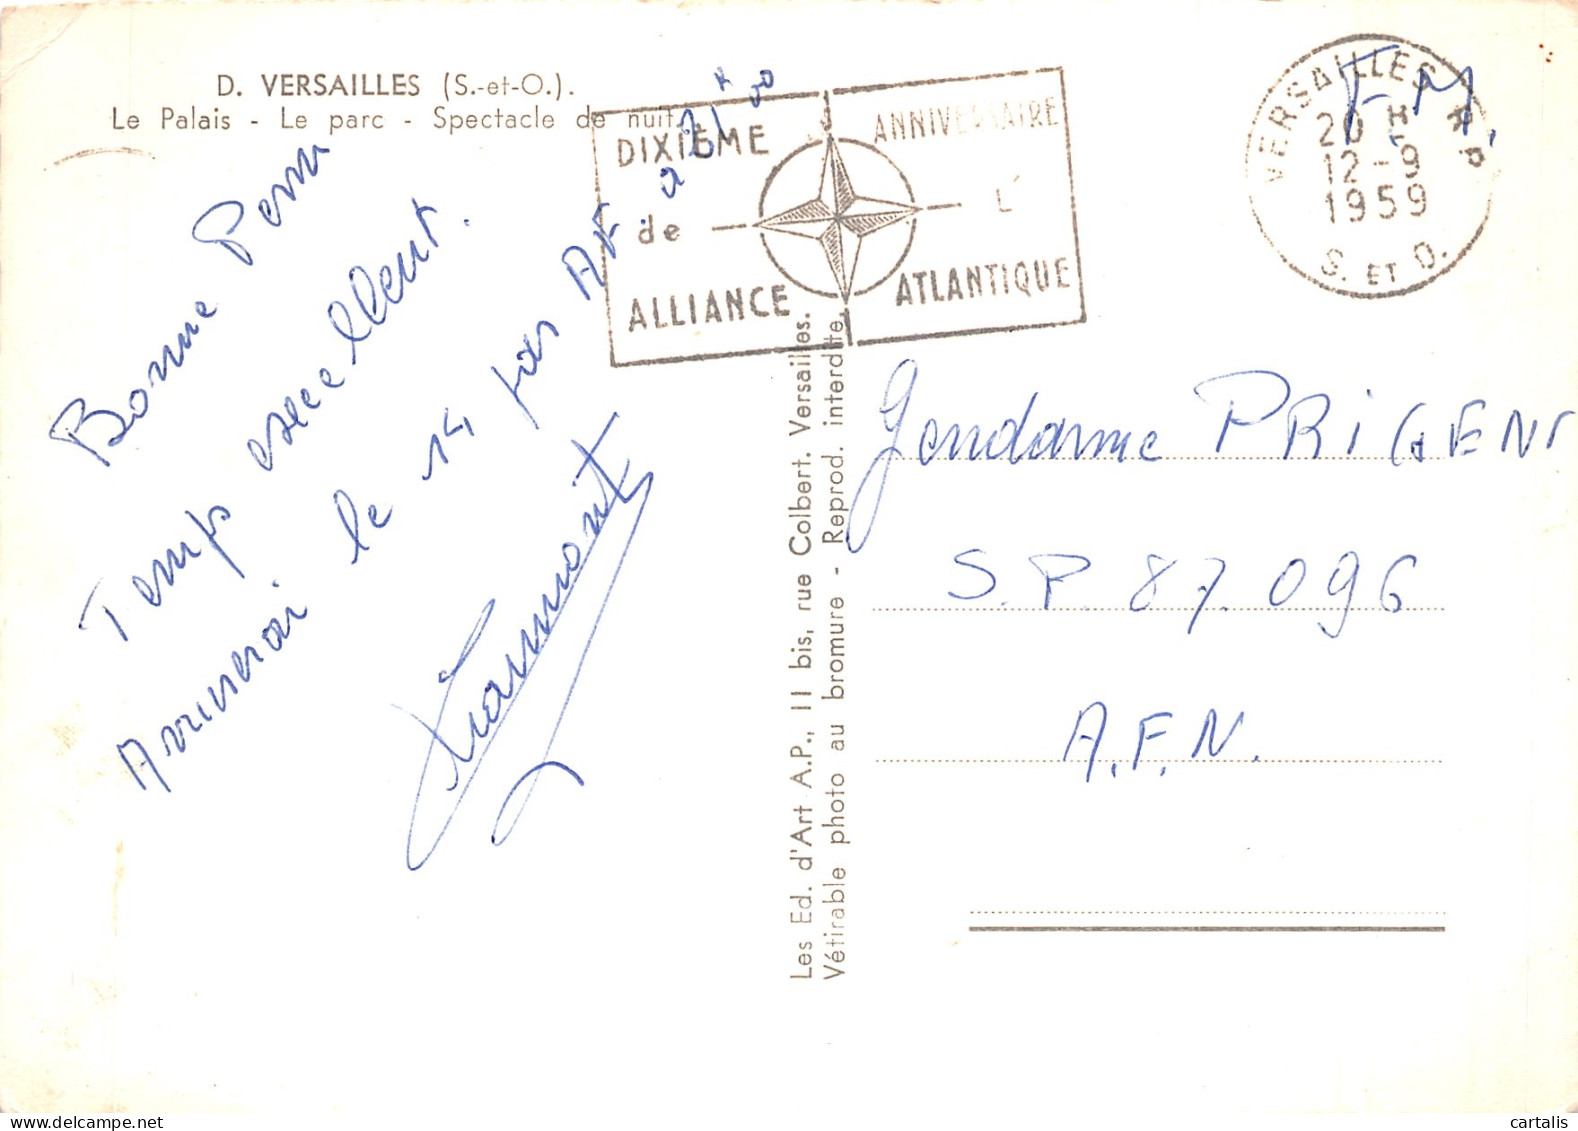 D. VERSAILLES (S.-et-O.).
Le Palais - Le parc - Spectacle de nuit.
DIXIÈME ANNIVERSAIRE
de L'
ALLIANCE ATLANTIQUE
VERSAILLES R.P.
20 H
12-9
1959
S. ET O.
F.M.
Bonne Perm
Temps excellent.
Arriverai le 14, par AF à 21H00
Gendarme PRIGENT
S.P. 87.096
A.F.N.
Les Ed. d'Art A.P., 11 bis, rue Colbert. Versailles.
Vétirable photo au bromure - Reprod. interdite.
cartalis